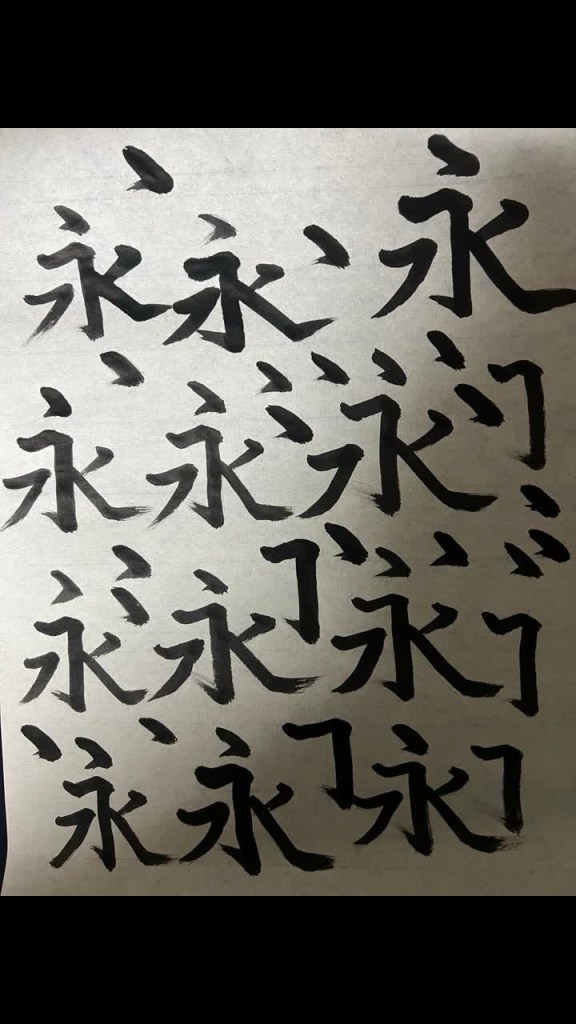 永 永 永
永 永 永
永 永 永
永 永 永